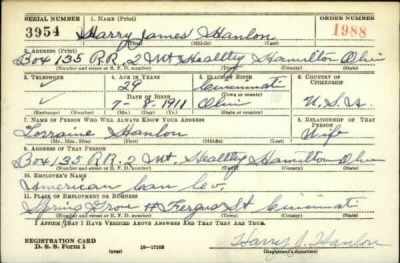 SERIAL NUMBER 1. NAME (Print) ORDER NUMBER
3954 Harry James Hanlon 1988
(First) (Middle) (Last)
2. ADDRESS (Print)
Box 135 R.R. 2 Mt. Healthy Hamilton Ohio
(Number and street or R. F. D. number) (Town) (County) (State)
3. TELEPHONE 4. AGE IN YEARS 5. PLACE OF BIRTH 6. COUNTRY OF CITIZENSHIP
29 Cincinnati
DATE OF BIRTH (Town or county)
7-8-1911 Ohio U.S.A.
(Exchange) (Number) (Mo.) (Day) (Yr.) (State or country)
7. NAME OF PERSON WHO WILL ALWAYS KNOW YOUR ADDRESS 8. RELATIONSHIP OF THAT PERSON
Lorraine Hanlon Wife
(Mr., Mrs., Miss) (First) (Middle) (Last)
9. ADDRESS OF THAT PERSON
Box 135 R.R. 2 Mt. Healthy Hamilton Ohio
(Number and street or R. F. D. number) (Town) (County) (State)
10. EMPLOYER'S NAME
American Can Co.
11. PLACE OF EMPLOYMENT OR BUSINESS
Spring Grove & St Cincinnati
(Number and street or R. F. D. number) (Town) (County) (State)
I AFFIRM THAT I HAVE VERIFIED ABOVE ANSWERS AND THAT THEY ARE TRUE.
REGISTRATION CARD
D. S. S. Form 1 (over) 16-17105 Harry J. Hanlon
(Registrant's signature)